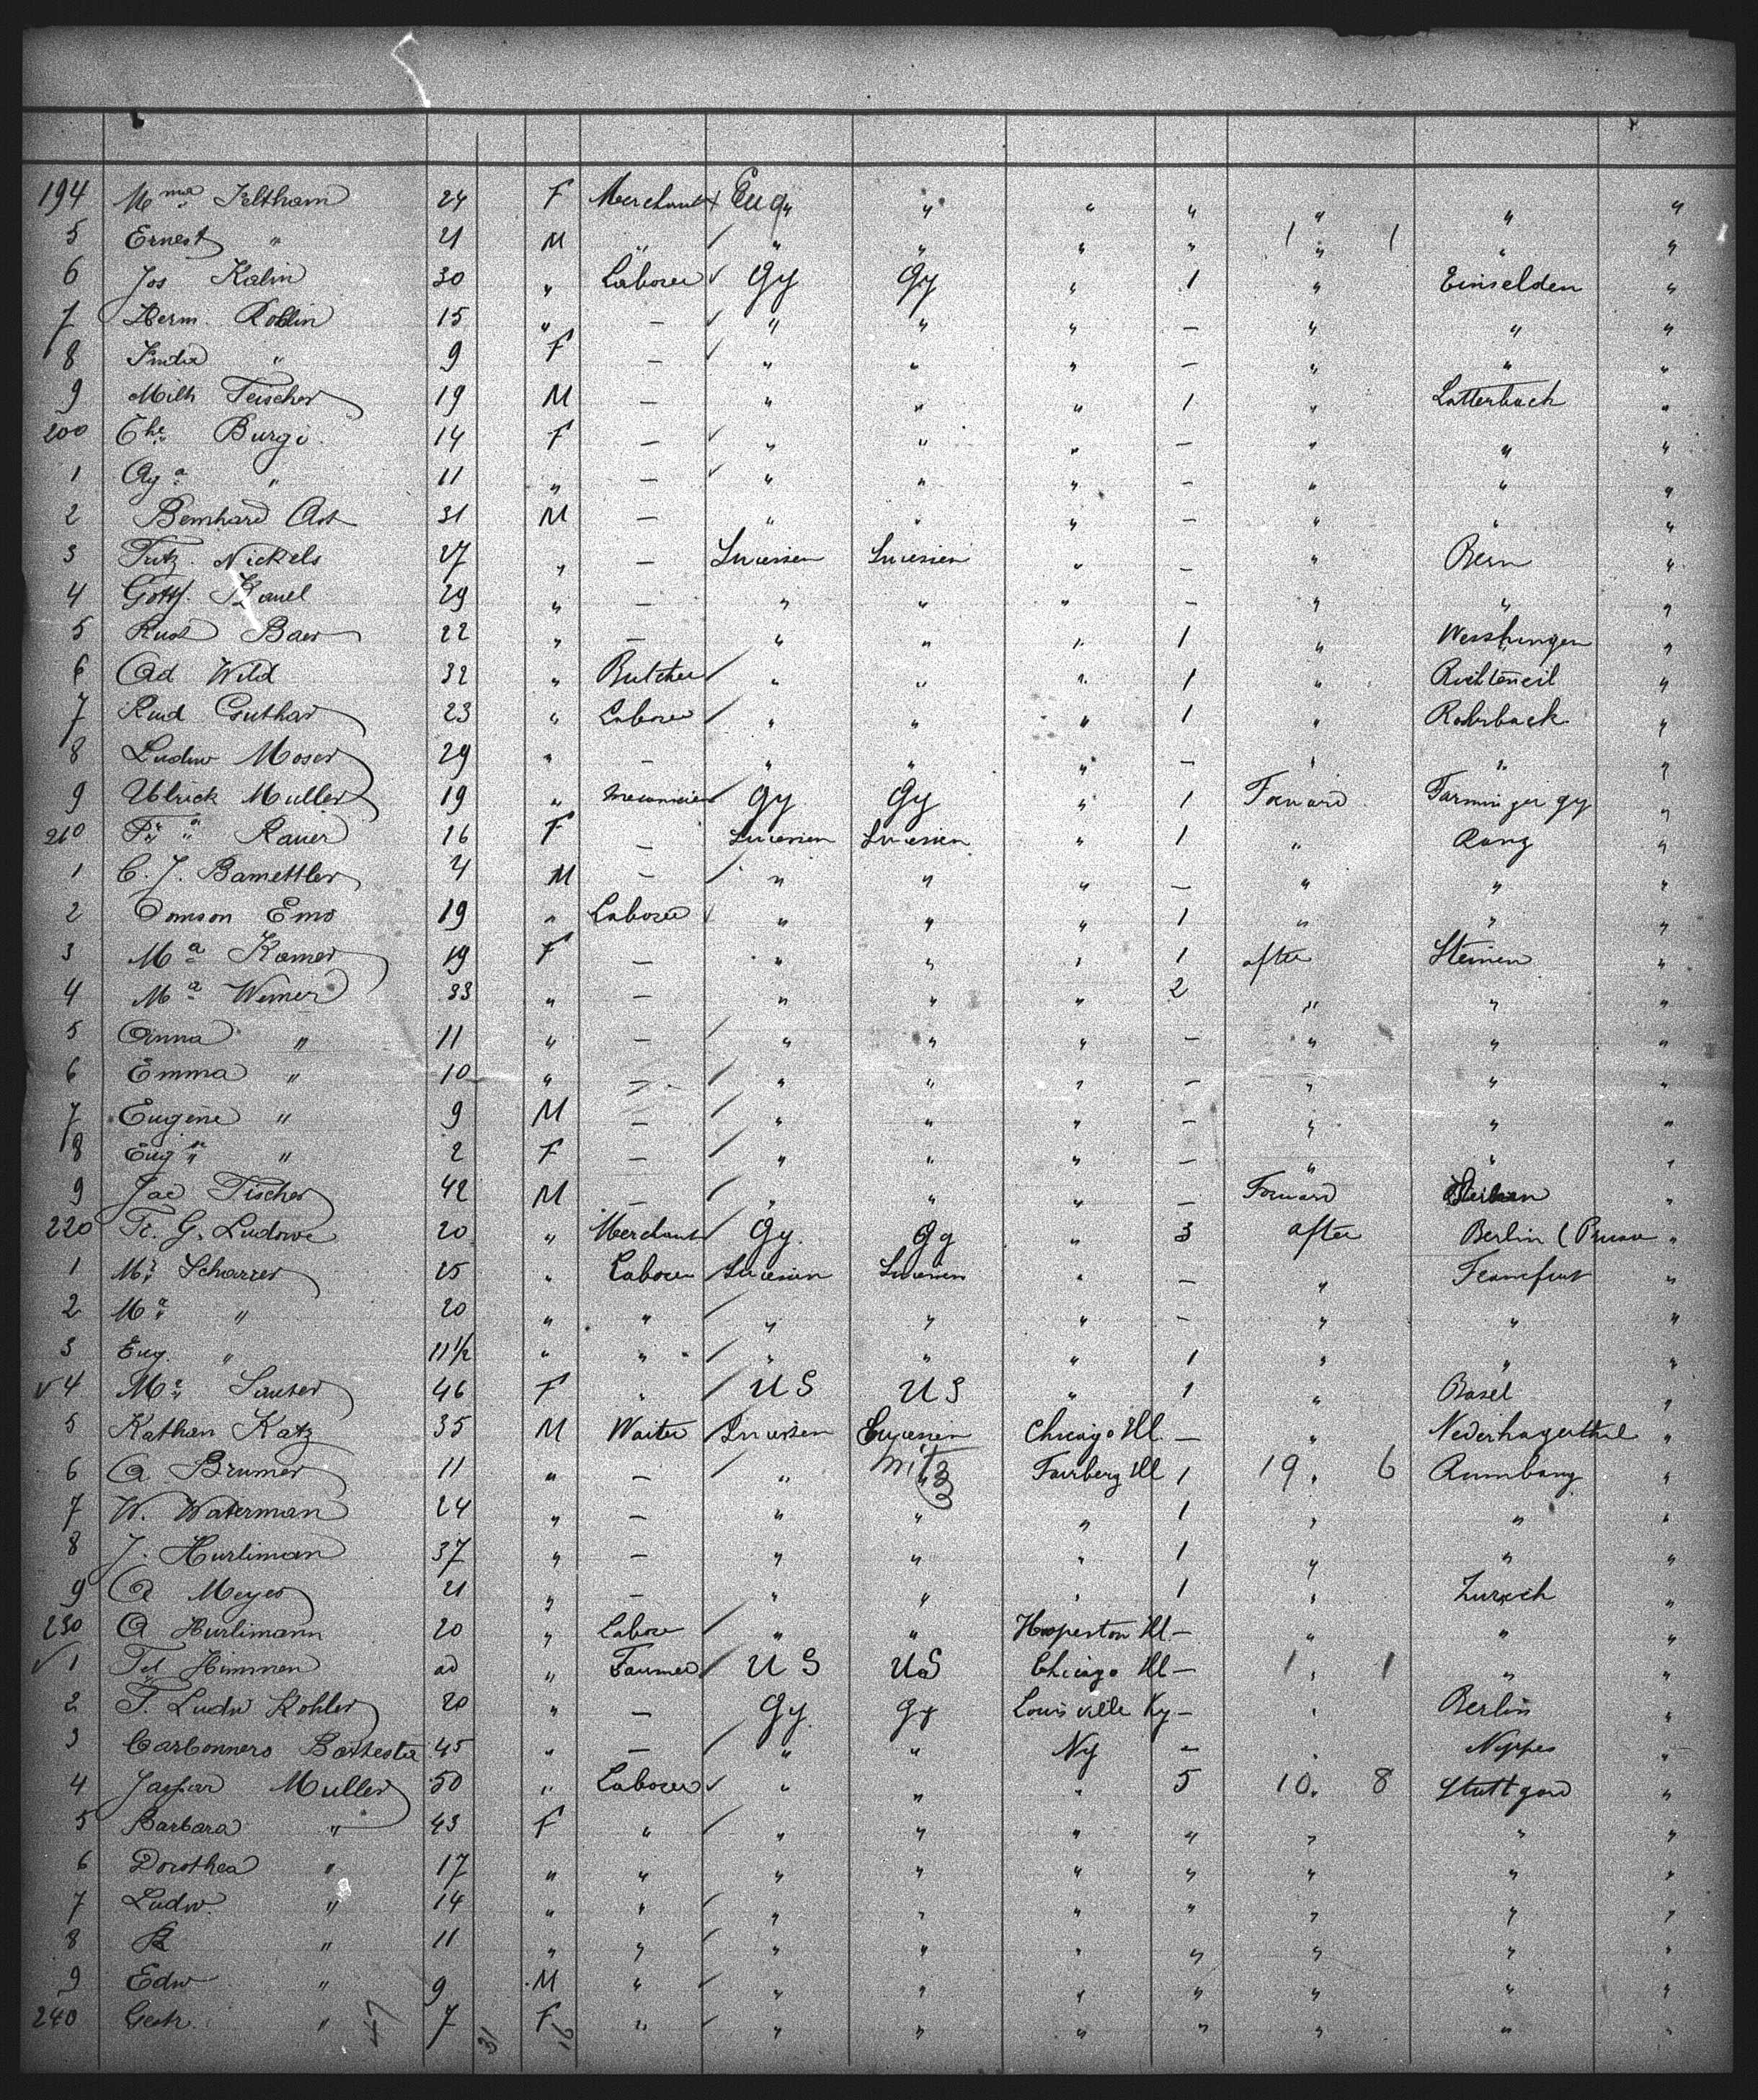 194 Mma Feltham 24 F Merchant Eng " " " " " "
5 Ernest " 21 M " " " " " 1 " 1 " "
6 Jos Kalin 30 " Laborer Gy Gy " 1 " Einselden "
7 Herm. Koblin 15 " — " " " — " " "
8 " 9 F — " " " — " " "
9 Milh Teischer 19 M — " " " 1 " Latterbach "
200 Che Burgi 14 F — " " " — " " "
1 Aga " 11 " — " " " — " " "
2 Bernhard Ast 31 M — " " " — " " "
3 Fritz. Nickels 27 " — Suessen Suessen " — " Bern "
4 Gottf. 29 " — " " " — " " "
5 Rud Baer 22 " — " " " 1 " "
6 Ad Wild 32 " Butcher " " " 1 " "
7 Rud Guthar 23 " Laborer " " " 1 " Rohrback "
8 Ludiw Moser 29 " — " " " — " " "
9 Ulrick Muller 19 " Gy Gy " 1 Forward Farminger gy "
210 Fra Rauer 16 F — Suessien Suessien " 1 " Rang "
1 C. J. Bamettler 4 M — " " " — " " "
2 Domson Emo 19 " Laborer " " " 1 " " "
3 Ma Kamer 19 F — " " " 1 after Steinen "
4 Ma Werner 33 " — " " " 2 " " "
5 Anna " 11 " — " " " — " " "
6 Emma " 10 " — " " " — " " "
7 Eugene " 9 M — " " " — " " "
8 Euga " 2 F — " " " — " " "
9 Jac Tischer 42 M — " " " — Forward "
220 Fr. G. Ludowe 20 " Merchant Gy. Gy " 3 after Berlin (Prusse "
1 Mr Scharrer 25 " Laborer Suessien Suessien " — " Francfurt "
2 Ma " 20 " " " " " — " " "
3 Eug. " 11½ " " " " " 1 " " "
4 Ma Sauter 46 F " U S U S " 1 " Basel "
5 Kathan Katz 35 M Waiter Suessien Suessien Chicago Ill. — " Nederhagenthal "
6 A Brumer 11 " — " " Fairberg Ill 1 19 " 6 Rumbang "
7 W. Waterman 24 " — " " " 1 " " "
8 J. Hurliman 37 " — " " " 1 " " "
9 A Meyer 21 " — " " " 1 " Zurich "
230 A Hurlimann 20 " Labore " " Hoopeston Ill — " " "
1 Himmen ad " Farmer U S U S Chicago Ill — 1 " 1 " "
2 F. Ludw Kohler 20 " — Gy. Gy Louisville Ky — " Berlin "
3 Carbonners Barkester 45 " — " " Ny — " Neppes "
4 Jaspar Muller 50 " Laborer " " " 5 10 " 8 Stuttgard "
5 Barbara " 43 F " " " " " " " "
6 Dorothea " 17 " " " " " " " " "
7 Ludw. " 14 " " " " " " " " "
8 " 11 " " " " " " " " "
9 Edw " 9 M " " " " " " " "
240 Gestr. " 7 F " " " " " " " "
47 31 16